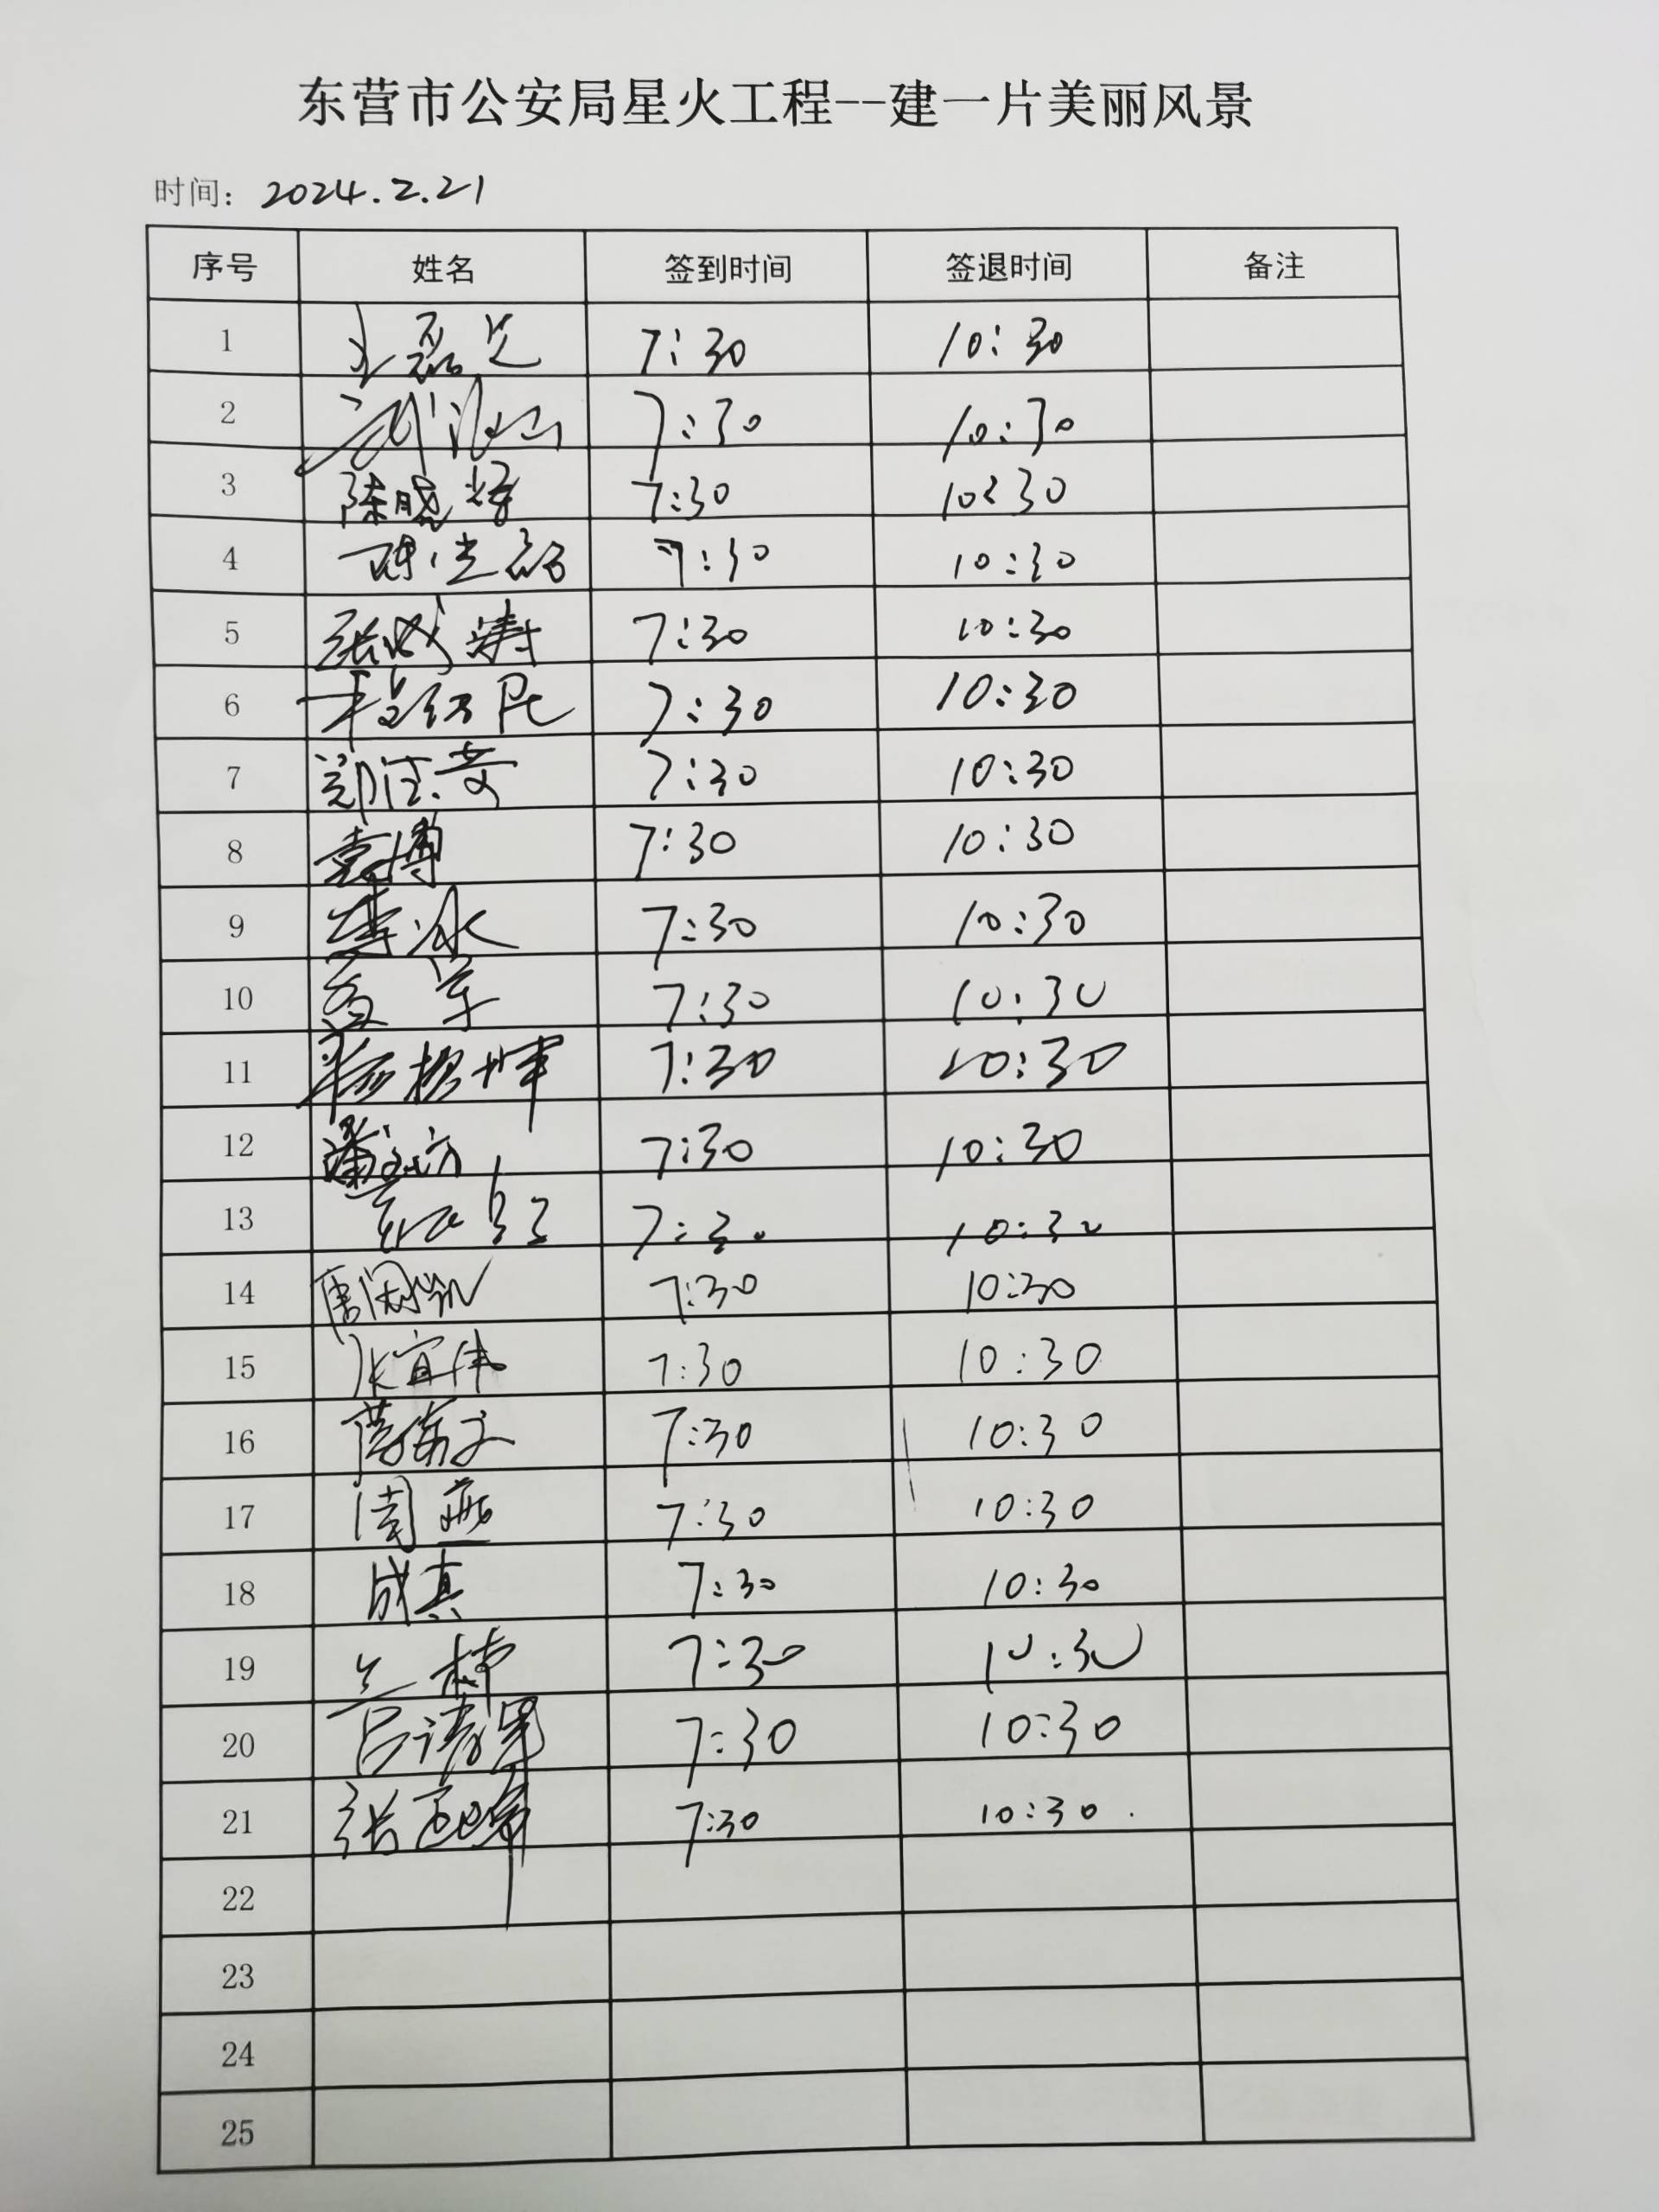 东营市公安局星火工程--建一片美丽风景
时间: 2024.2.21
序号 姓名 签到时间 签退时间 备注
1 7:30 10:30
2 7:30 10:30
3 陈晓辉 7:30 10:30
4 7:30 10:30
5 张成涛 7:30 10:30
6 程纪民 7:30 10:30
7 7:30 10:30
8 袁博 7:30 10:30
9 李冰 7:30 10:30
10 7:30 10:30
11 杨振辉 7:30 10:30
12 7:30 10:30
13 7:30 10:30
14 7:30 10:30
15 张宜伟 7:30 10:30
16 7:30 10:30
17 周燕 7:30 10:30
18 成真 7:30 10:30
19 7:30 10:30
20 7:30 10:30
21 7:30 10:30
22
23
24
25